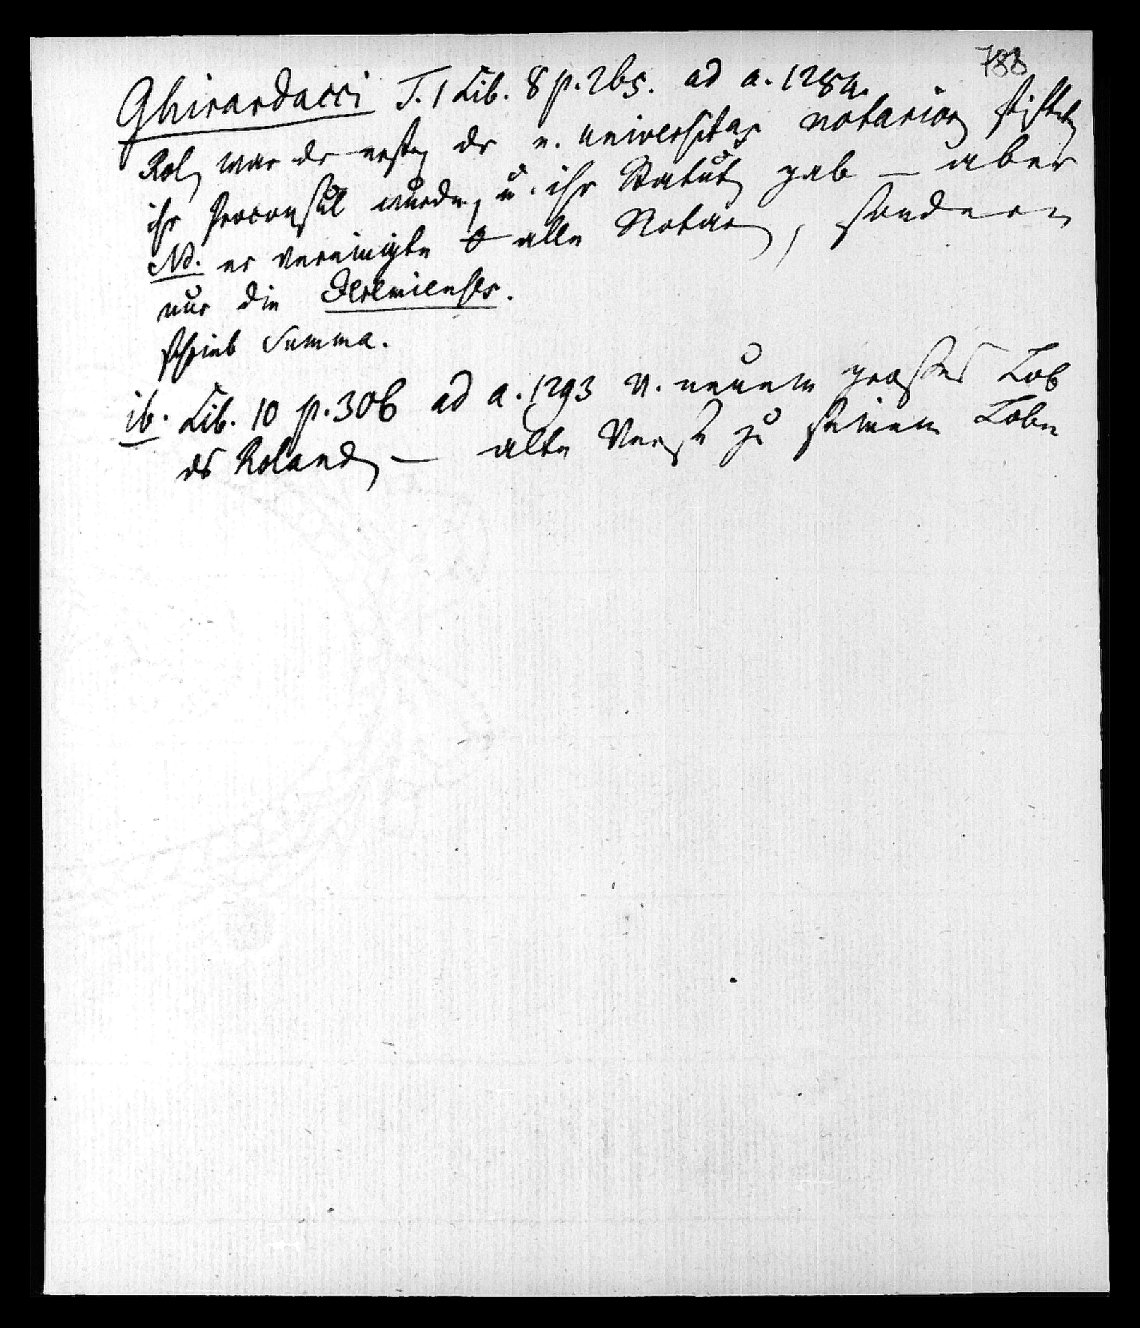 788
Ghirardacci T. 1 Lib. 8 p. 265. ad a. 1284.
Rol, war der erste der e. universitas notarior stiftete
ihr Proconsul wurde, u. ihr Statute gab – aber
Nb. er vereinigte alle Notare, sondern
nur die
schrieb Summa.
ib. Lib. 10 p. 306 ad a. 1293 v. neuem großes Lob
des Roland, – alte Verse zu seinem Lobe